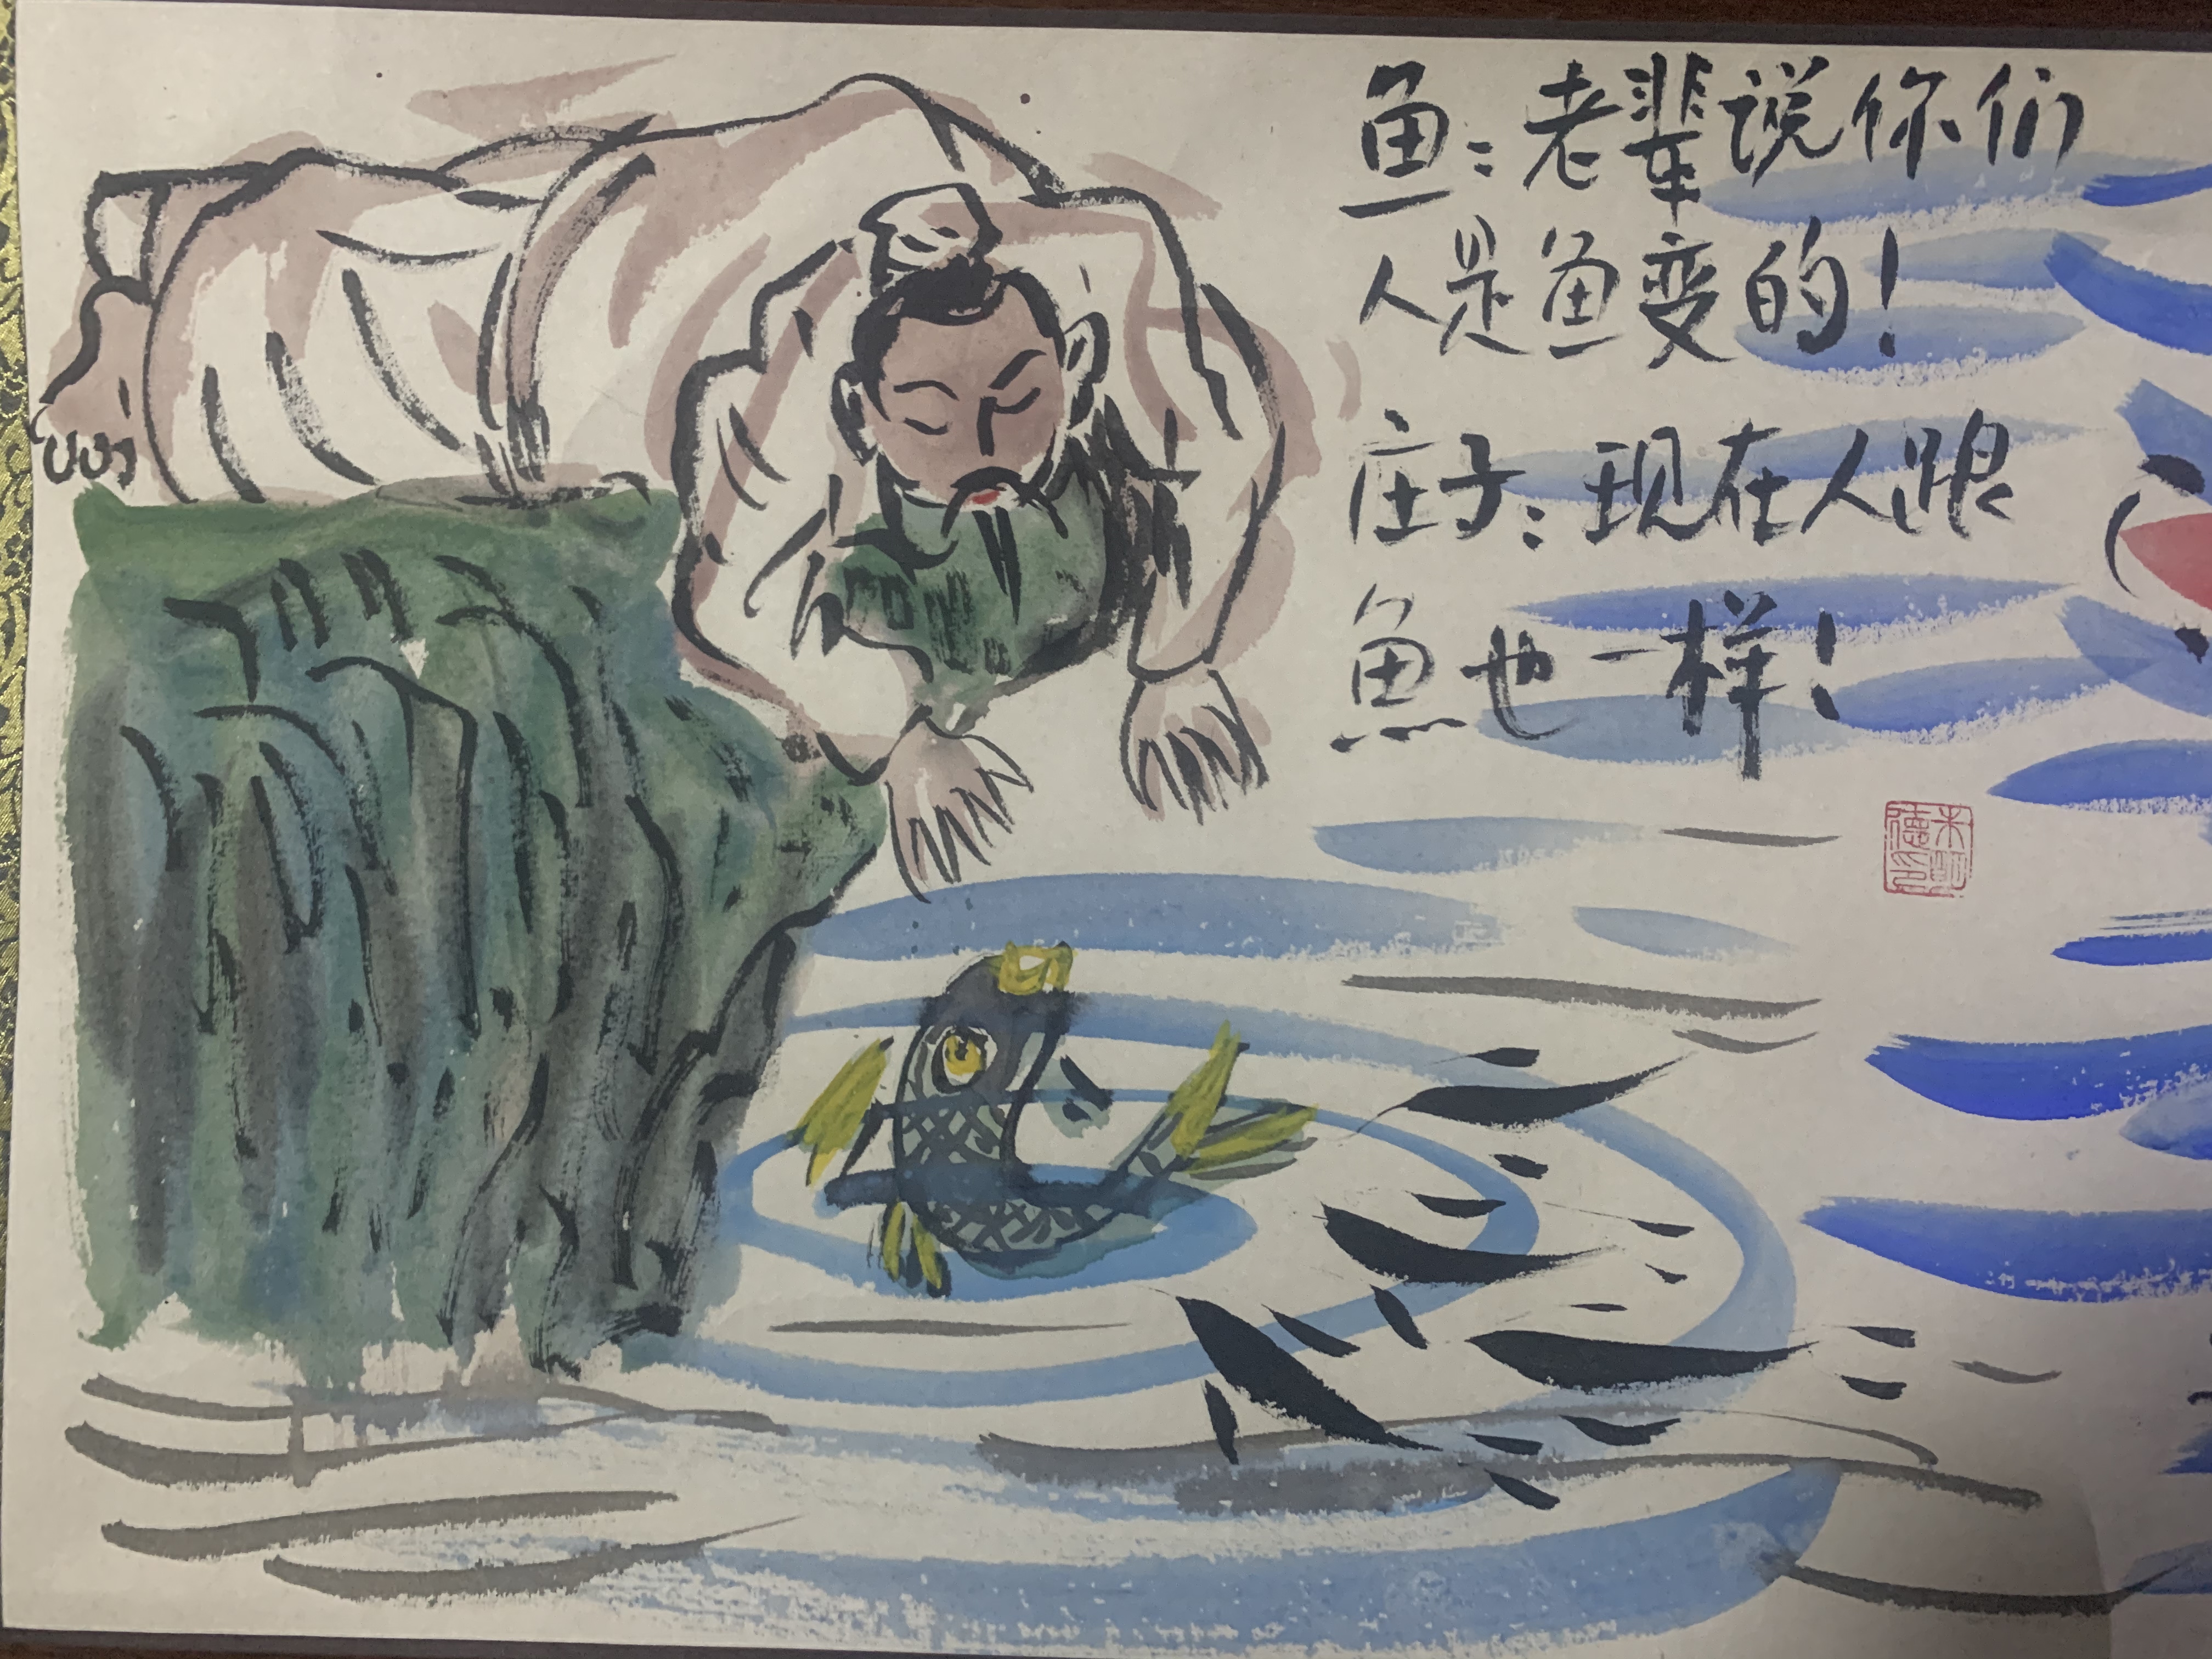 鱼：老辈说你们
人是鱼变的！
庄子：现在人跟
魚也一样！